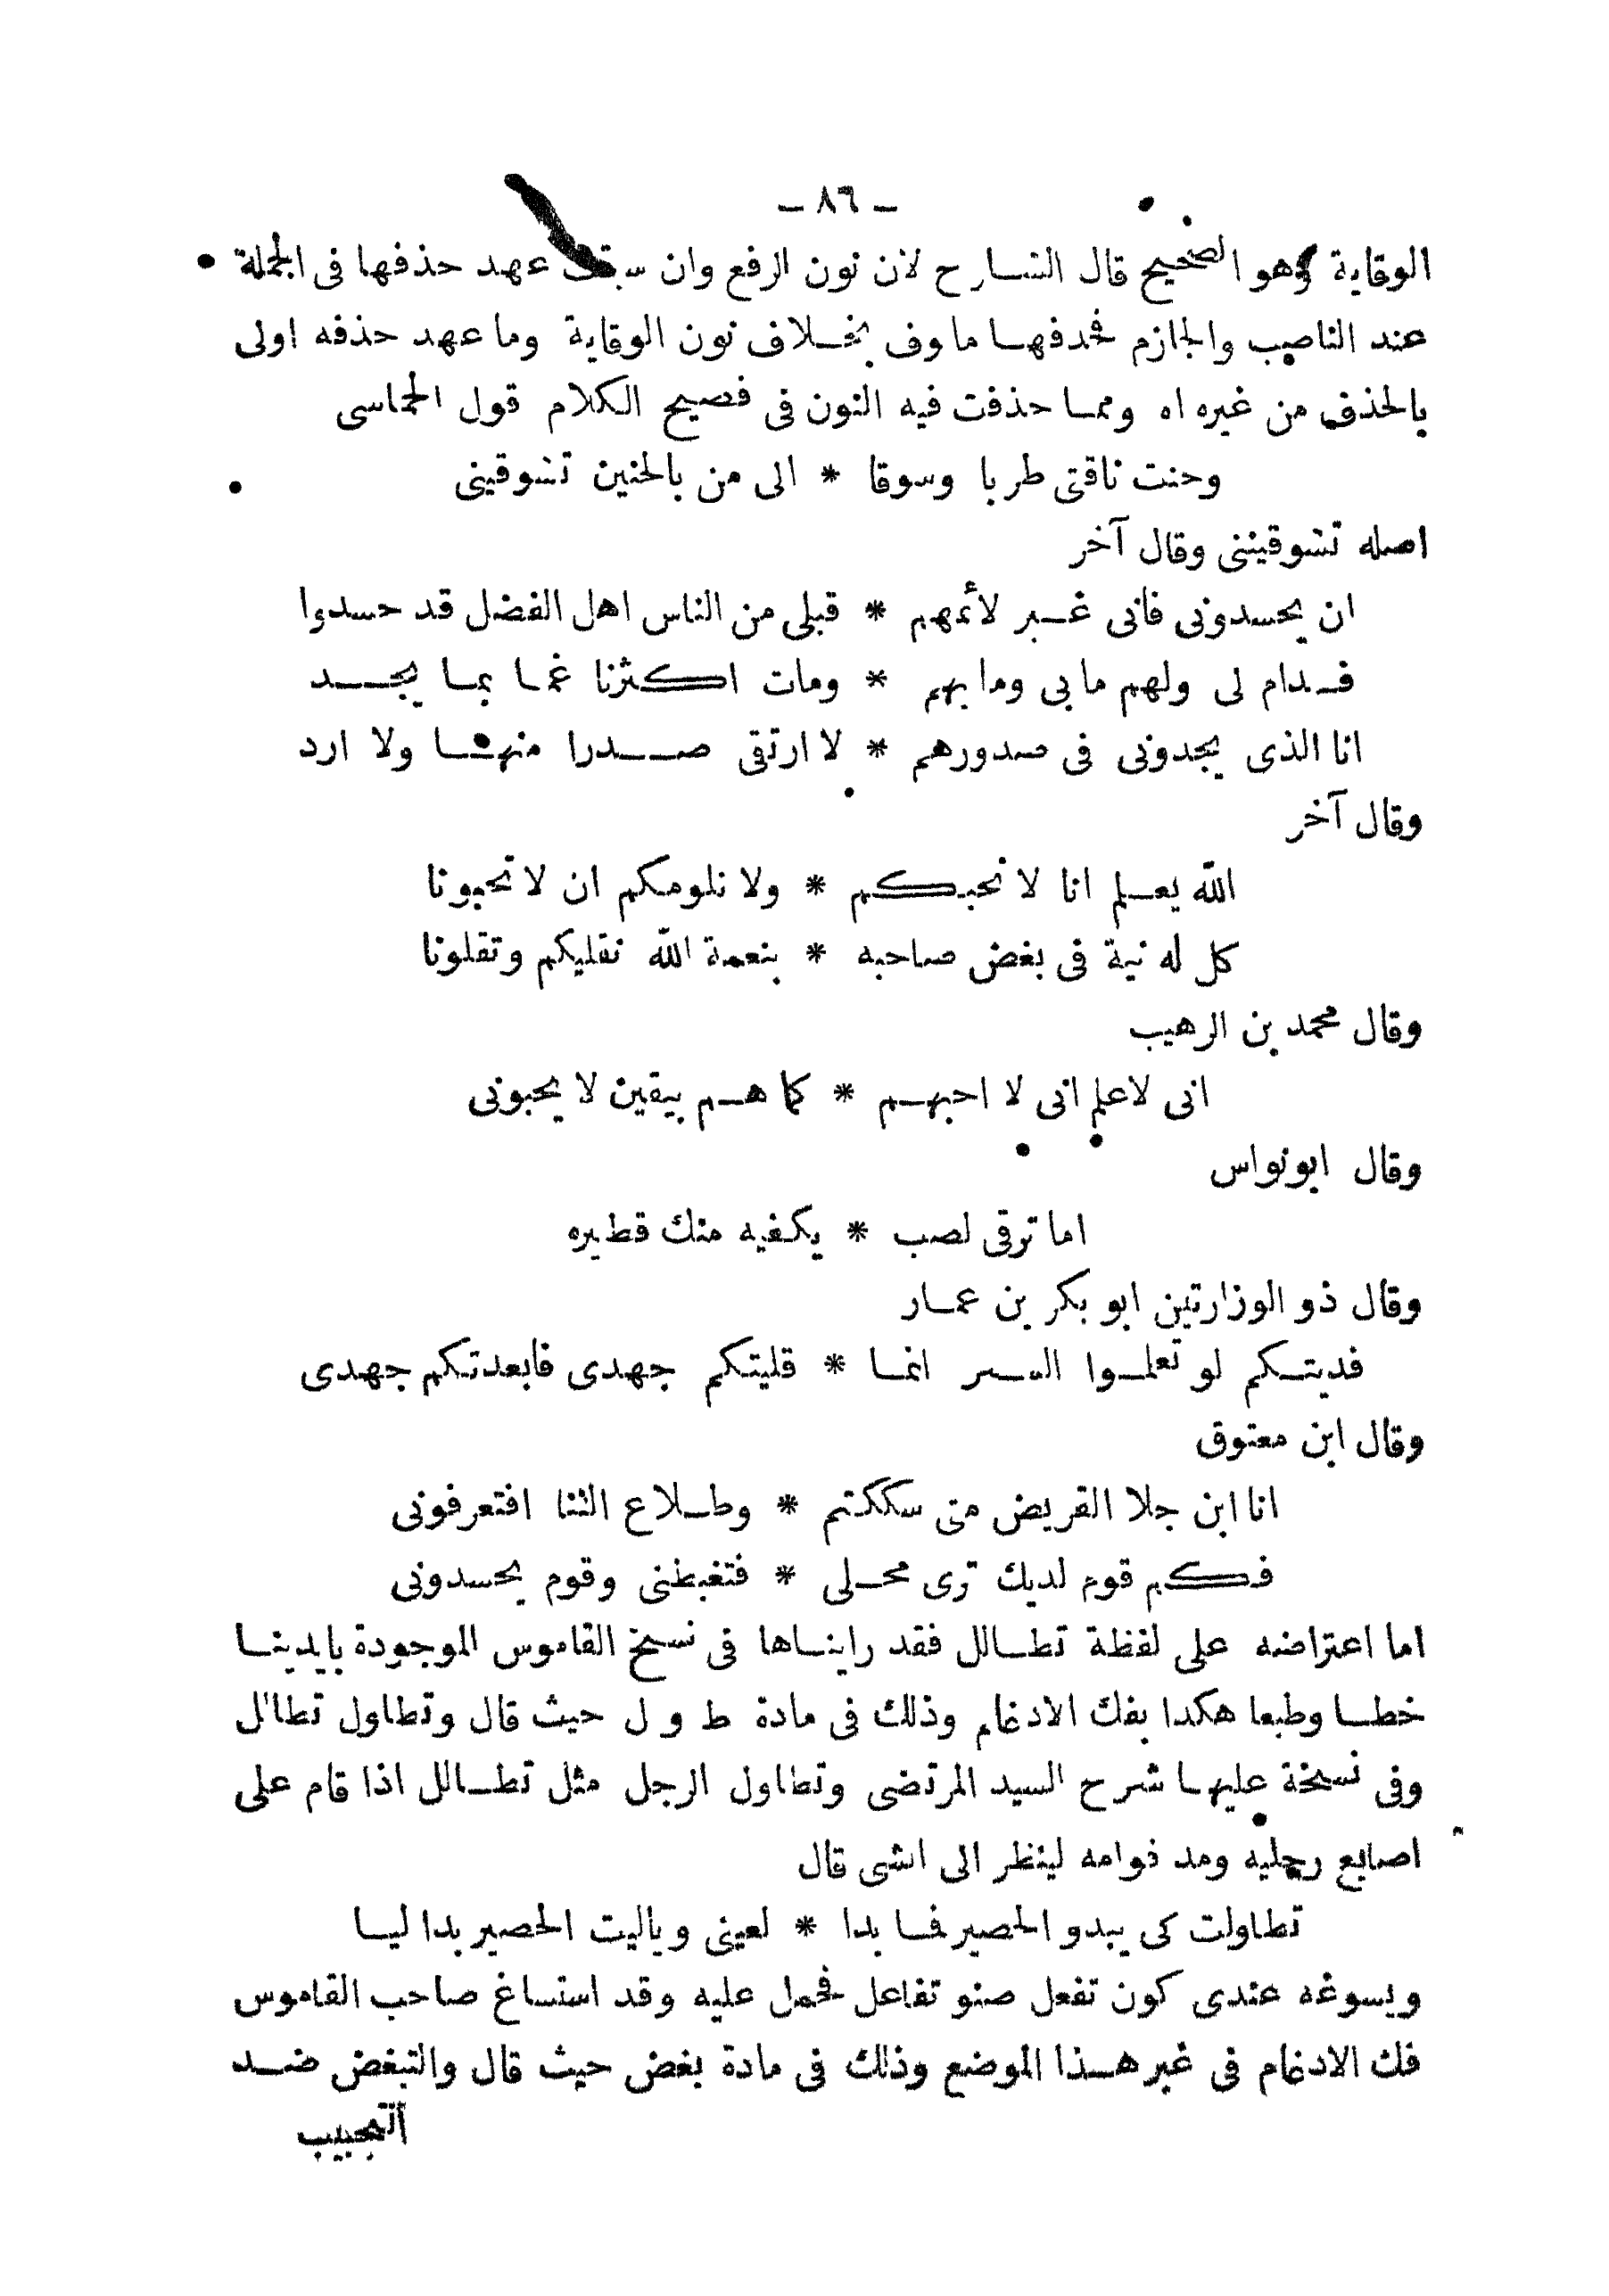 ـ ٨٦ ـ
الوقاية وهو الصحيح قال الشـارح لان نون الرفع وان سبقت عهد حذفها فى الجملة
عند الناصب والجازم فحدفهـا ماوف بخـلاف نون الوقاية وما عهد حذفه اولى
بالحذف من غيره اه وممـا حذفت فيه النون فى فصيح الكلام قول الحماسى
وحنت ناقتى طربا وسوقا * الى من بالحنين تشوقينى
اصله تشوقيننى وقال آخر
ان يحسدونى فانى غـير لائمهم * قبلى من الناس اهل الفضل قد حسدوا
فـدام لى ولهم مابى ومابهم * ومات اكـثرنا غمـا بمـا يجـــد
انا الذى يجدونى فى صدورهم * لا ارتقى صــدرا منهـا ولا ارد
وقال آخر
الله يعـلم انا لا نحبـكم * ولا نلومكم ان لا تحبونا
كل له نية فى بغض صاحبه * بنعمة الله نقليكم وتقلونا
وقال محمد بن الرهيب
انى لاعلم انى لا احبهـم * كما هـم بيقين لا يحبونى
وقال ابونواس
اما ترقى لصب * يكفيه منك قطيره
وقال ذو الوزارتين ابو بكر بن عمـار
فديتـكم لو تعلـوا السـر انمـا * قليتكم جهدى فابعدتكم جهدى
وقال ابن معتوق
انا ابن جلا القريض متى سككتم * وطـلاع الثنا افتعرفونى
فـكم قوم لديك ترى محـلى * فتغبطنى وقوم يحسدونى
اما اعتراضه على لفظة تطـالل فقد راينـاها فى نسخ القاموس الموجودة بايدينـا
خطـا وطبعا هكدا بفك الادغام وذلك فى مادة ط و ل حيث قال وتطاول تطالل
وفى نسخة عليهـا شرح السيد المرتضى وتطاول الرجل مثل تطـالل اذا قام على
اصابع رجليه ومد قوامه لينظر الى اشى قال
تطاولت كى يبدو الحصير فمـا بدا * لعينى وياليت الحصير بدا ليـا
ويسوغه عندى كون تفعل صنو تفاعل فحمل عليه وقد استساغ صاحب القاموس
فك الادغام فى غير هـذا الموضع وذلك فى مادة بغض حيث قال والتبغض ضـد
التحبيب